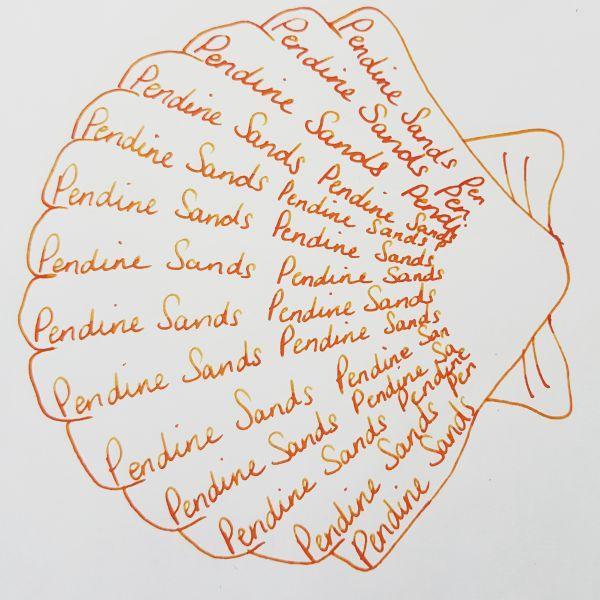 Pendine Sands Pen
Pendine Sands Pen
Pendine Sands Pendi
Pendine Sands Pendine Sands
Pendine Sands Pendine Sands P
Pendine Sands Pendine Sands
Pendine Sands Pendine Sands
Pendine Sands Pendine Sands
Pendine Sands Pendine Sands
Pendine Sands Pendine San
Pendine Sands Pendine Sa
Pendine Sands Pendine
Pendine Sands Pen
Pendine Sands